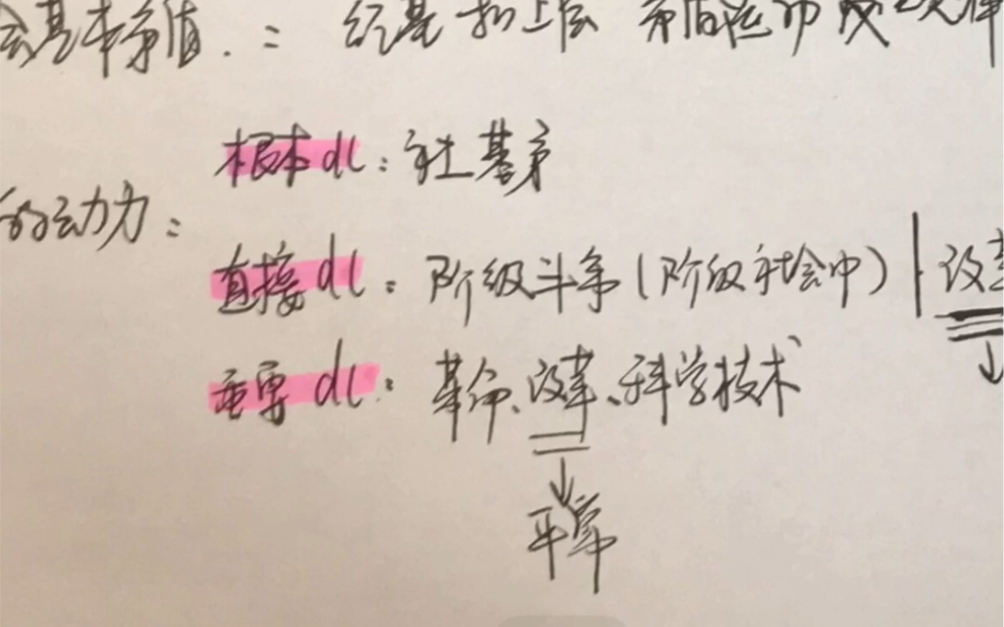 会基本矛盾.： 经基和上层 矛盾
根本dl：社基矛
的动力：
直接dl：阶级斗争(阶级社会中) 改
重要dl：革命、改革、科学技术
平常